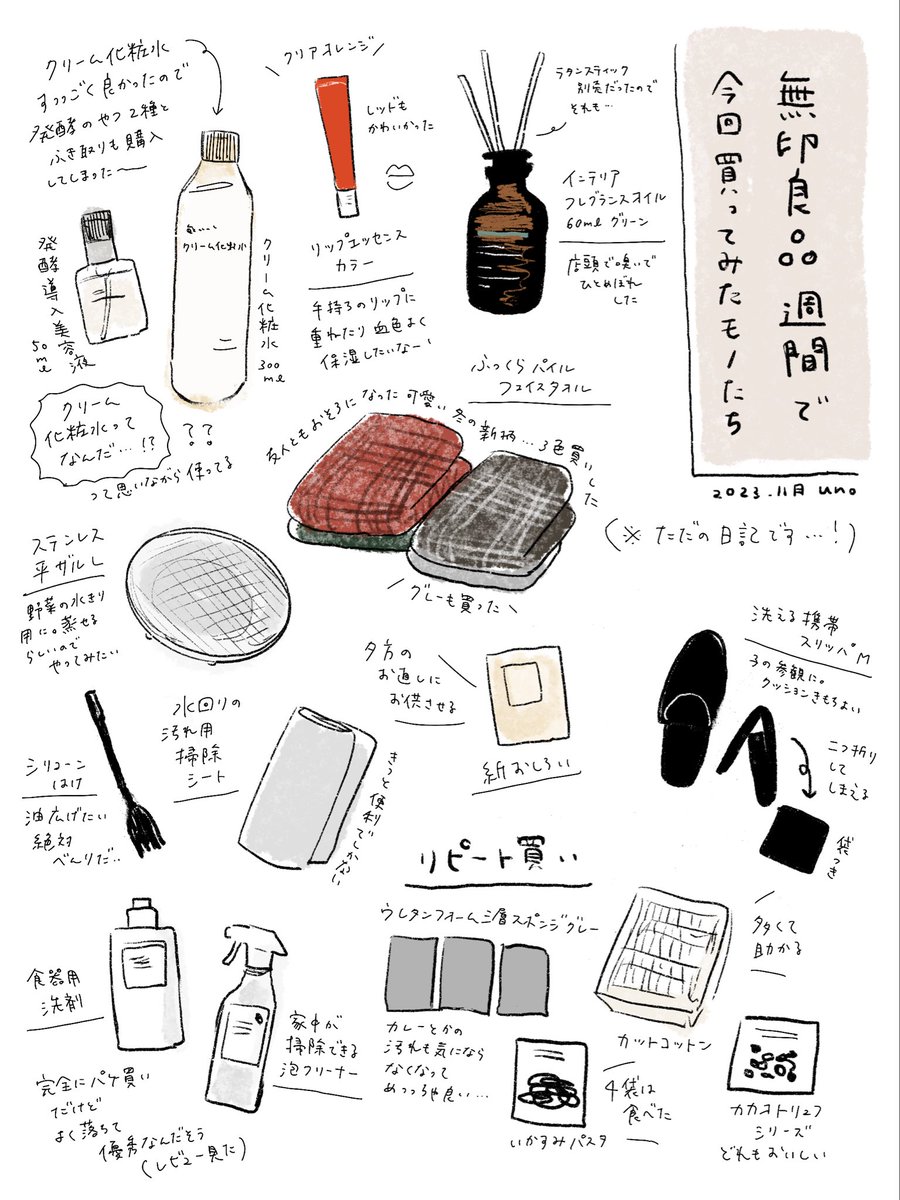 無印良品週間で
今回買ってみたモノたち
2023.11月 uno
(※ ただの日記です…！)
クリーム化粧水
すっごく良かったので
発酵のやつ2種と
ふき取りも購入
してしまった〜
発酵導入美容液
50ml
クリーム化粧水
クリーム化粧水 300ml
クリーム
化粧水って
なんだ…!?
??
って思いながら使ってる
クリアオレンジ
レッドも
かわいかった
リップエッセンス
カラー
手持ちのリップに
重ねたり血色よく
保湿したいなー
ラタンスティック
別売だったので
それも…
インテリア
フレグランスオイル
60ml グリーン
店頭で嗅いで
ひとめぼれ
した
ふっくらパイル
フェイスタオル
友人ともおそろになった可愛い冬の新柄…3色買いした
グレーも買った
ステンレス
平ザル L
野菜の水きり
用に。蒸せる
らしいので
やってみたい
夕方の
お直しに
お供させる
紙おしろい
洗える携帯
スリッパM
子の参観に。
クッションきもちよい
二つ折り
して
しまえる
袋つき
シリコーン
はけ
油広げたい
絶対
べんりだ..
水回りの
汚れ用
掃除
シート
きっと便利でしかない
リピート買い
食器用
洗剤
完全にパケ買い
だけど
よく落ちて
優秀なんだそう
(レビュー見た)
家中が
掃除できる
泡クリーナー
ウレタンフォーム三層スポンジグレー
カレーとかの
汚れも気になら
なくなって
めっっちゃ良い…
多くて
助かる
カットコットン
いかすみパスタ
4袋は
食べた
カカオトリュフ
シリーズ
どれもおいしい